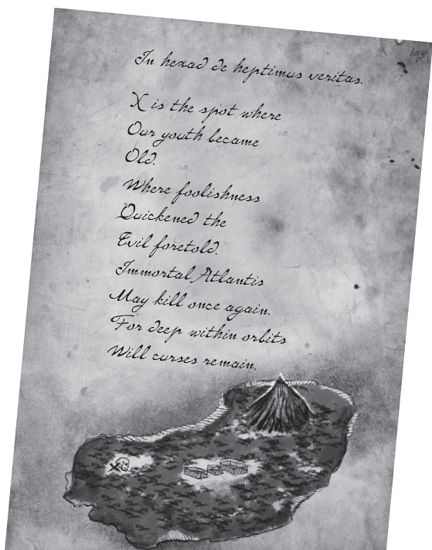 In hexad de heptimus veritas.
X is the spot where
Our youth became
Old.
Where foolishness
Quickened the
Evil foretold.
Immortal Atlantis
May kill once again.
For deep within orbits
Will curses remain.